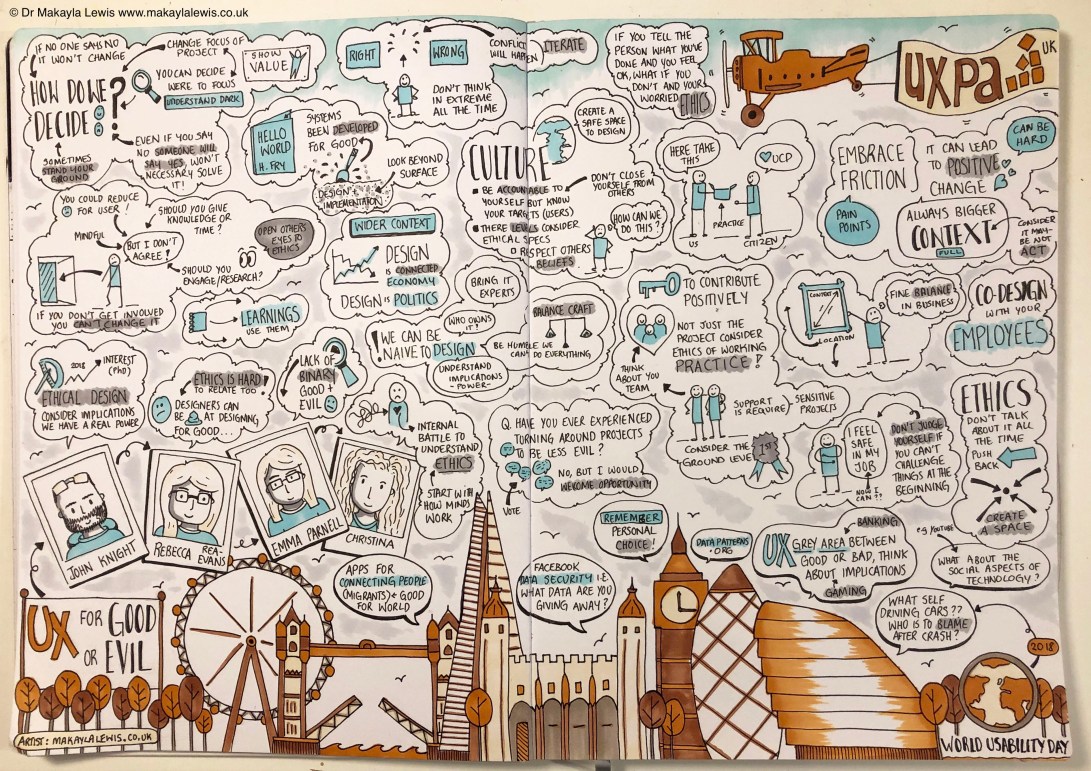 © Dr Makayla Lewis www.makaylalewis.co.uk
IF NO ONE SAYS NO
IT WON'T CHANGE
CHANGE FOCUS OF
PROJECT
SHOW
VALUE
HOW DO WE
DECIDE?
YOU CAN DECIDE
WERE TO FOCUS
UNDERSTAND DARK
SOMETIMES
STAND YOUR
GROUND
EVEN IF YOU SAY
NO SOMEONE WILL
SAY YES, WON'T
NECESSARY SOLVE
IT!
RIGHT
WRONG
CONFLICT
WILL HAPPEN
ITERATE
DON'T THINK
IN EXTREME
ALL THE TIME
HELLO
WORLD
H. FRY
SYSTEMS
BEEN DEVELOPED
FOR GOOD
?
DESIGN +
IMPLEMENTATION
LOOK BEYOND
SURFACE
IF YOU TELL THE
PERSON WHAT YOU'VE
DONE AND YOU FEEL
OK, WHAT IF YOU
DON'T AND YOUR
WORRIED ETHICS
UXPA
UK
CULTURE
CREATE A
SAFE SPACE
TO DESIGN
BE ACCOUNTABLE TO
YOURSELF BUT KNOW
YOUR TARGETS (USERS)
THERE LEVELS CONSIDER
ETHICAL SPECS
RESPECT OTHERS
BELIEFS
DON'T CLOSE
YOURSELF FROM
OTHERS
HOW CAN WE
DO THIS?
HERE TAKE
THIS
UCP
PRACTICE
US
CITIZEN
EMBRACE
FRICTION
PAIN
POINTS
IT CAN LEAD
TO POSITIVE
CHANGE
CAN BE
HARD
ALWAYS BIGGER
CONTEXT
FULL
CONSIDER
IT MAY-
BE NOT
ACT
YOU COULD REDUCE
FOR USER!
MINDFUL
BUT I DON'T
AGREE!
SHOULD YOU GIVE
KNOWLEDGE OR
TIME?
SHOULD YOU
ENGAGE/RESEARCH?
OPEN OTHERS
EYES TO
ETHICS
IF YOU DON'T GET INVOLVED
YOU CAN'T CHANGE IT
LEARNINGS
USE THEM
WIDER CONTEXT
DESIGN
IS CONNECTED
ECONOMY
DESIGN IS POLITICS
BRING IT
EXPERTS
WHO OWNS
IT!
! WE CAN BE
NAIVE TO DESIGN
UNDERSTAND
IMPLICATIONS
- POWER -
BALANCE CRAFT
BE HUMBLE WE
CAN'T DO EVERYTHING
TO CONTRIBUTE
POSITIVELY
NOT JUST THE
PROJECT CONSIDER
ETHICS OF WORKING
PRACTICE!
THINK
ABOUT YOU
TEAM
CONTEXT
LOCATION
FINE BALANCE
IN BUSINESS
CO-DESIGN
WITH YOUR
EMPLOYEES
2018
INTEREST
(PhD)
ETHICAL DESIGN
CONSIDER IMPLICATIONS
WE HAVE A REAL POWER
ETHICS IS HARD
TO RELATE TOO!
DESIGNERS CAN
BE AT DESIGNING
FOR GOOD...
LACK OF
BINARY
GOOD +
EVIL
INTERNAL
BATTLE TO
UNDERSTAND
ETHICS
START WITH
HOW MINDS
WORK
Q. HAVE YOU EVER EXPERIENCED
TURNING AROUND PROJECTS
TO BE LESS EVIL?
NO, BUT I WOULD
WELCOME OPPORTUNITY
VOTE
SUPPORT
IS REQUIRE
SENSITIVE
PROJECTS
CONSIDER THE
GROUND LEVEL
1ST
I FEEL
SAFE
IN MY
JOB
NOW I
CAN??
DON'T JUDGE
YOURSELF IF
YOU CAN'T
CHALLENGE
THINGS AT THE
BEGINNING
ETHICS
DON'T TALK
ABOUT IT ALL
THE TIME
PUSH
BACK
CREATE
A SPACE
JOHN KNIGHT
REBECCA REA-
EVANS
EMMA PARNELL
CHRISTINA
REMEMBER
PERSONAL
CHOICE!
DATA PATTERNS
.ORG
BANKING
UX GREY AREA BETWEEN
GOOD OR BAD, THINK
ABOUT IMPLICATIONS
GAMING
e.g. YOUTUBE
WHAT ABOUT THE
SOCIAL ASPECTS OF
TECHNOLOGY?
APPS FOR
CONNECTING PEOPLE
(MIGRANTS) + GOOD
FOR WORLD
FACEBOOK
DATA SECURITY I.E.
WHAT DATA ARE YOU
GIVING AWAY?
WHAT SELF
DRIVING CARS??
WHO IS TO BLAME
AFTER CRASH?
UX FOR GOOD
OR EVIL
2018
ARTIST: MAKAYLALEWIS.CO.UK
WORLD USABILITY DAY